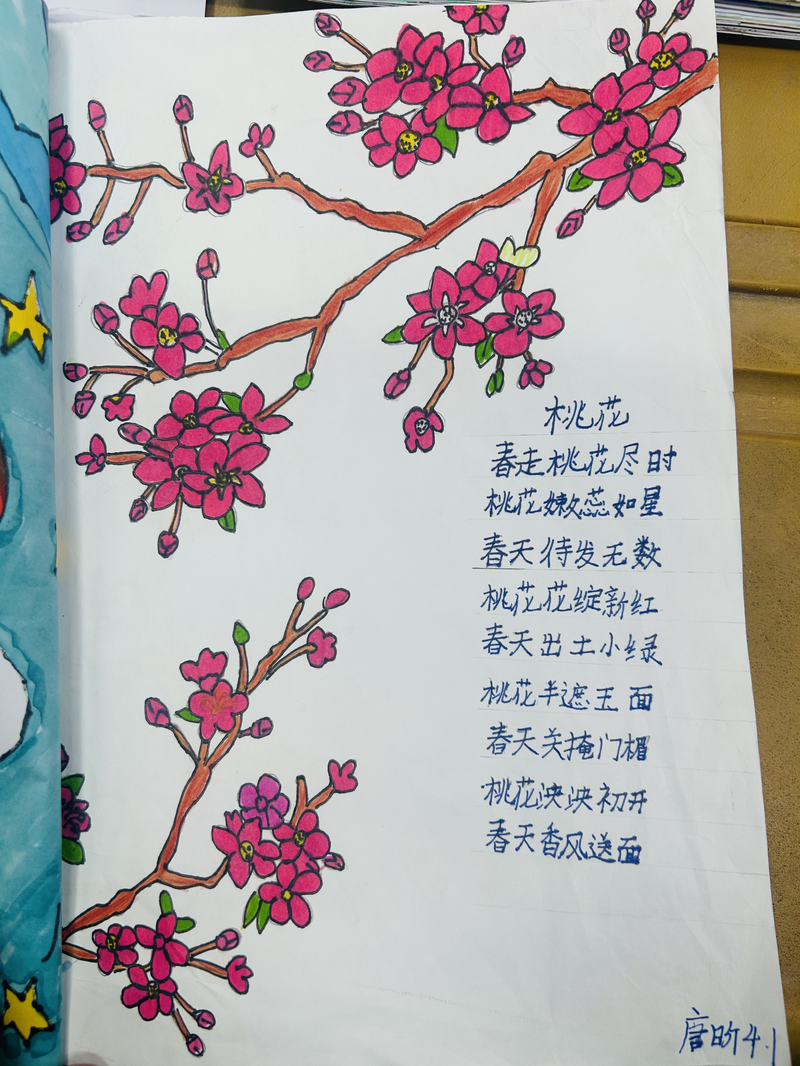 桃花
春走桃花尽时
桃花嫩蕊如星
春天待发无数
桃花花绽新红
春天出土小绿
桃花半遮玉面
春天关掩门楣
桃花泱泱初开
春天香风送面
唐昕4.1